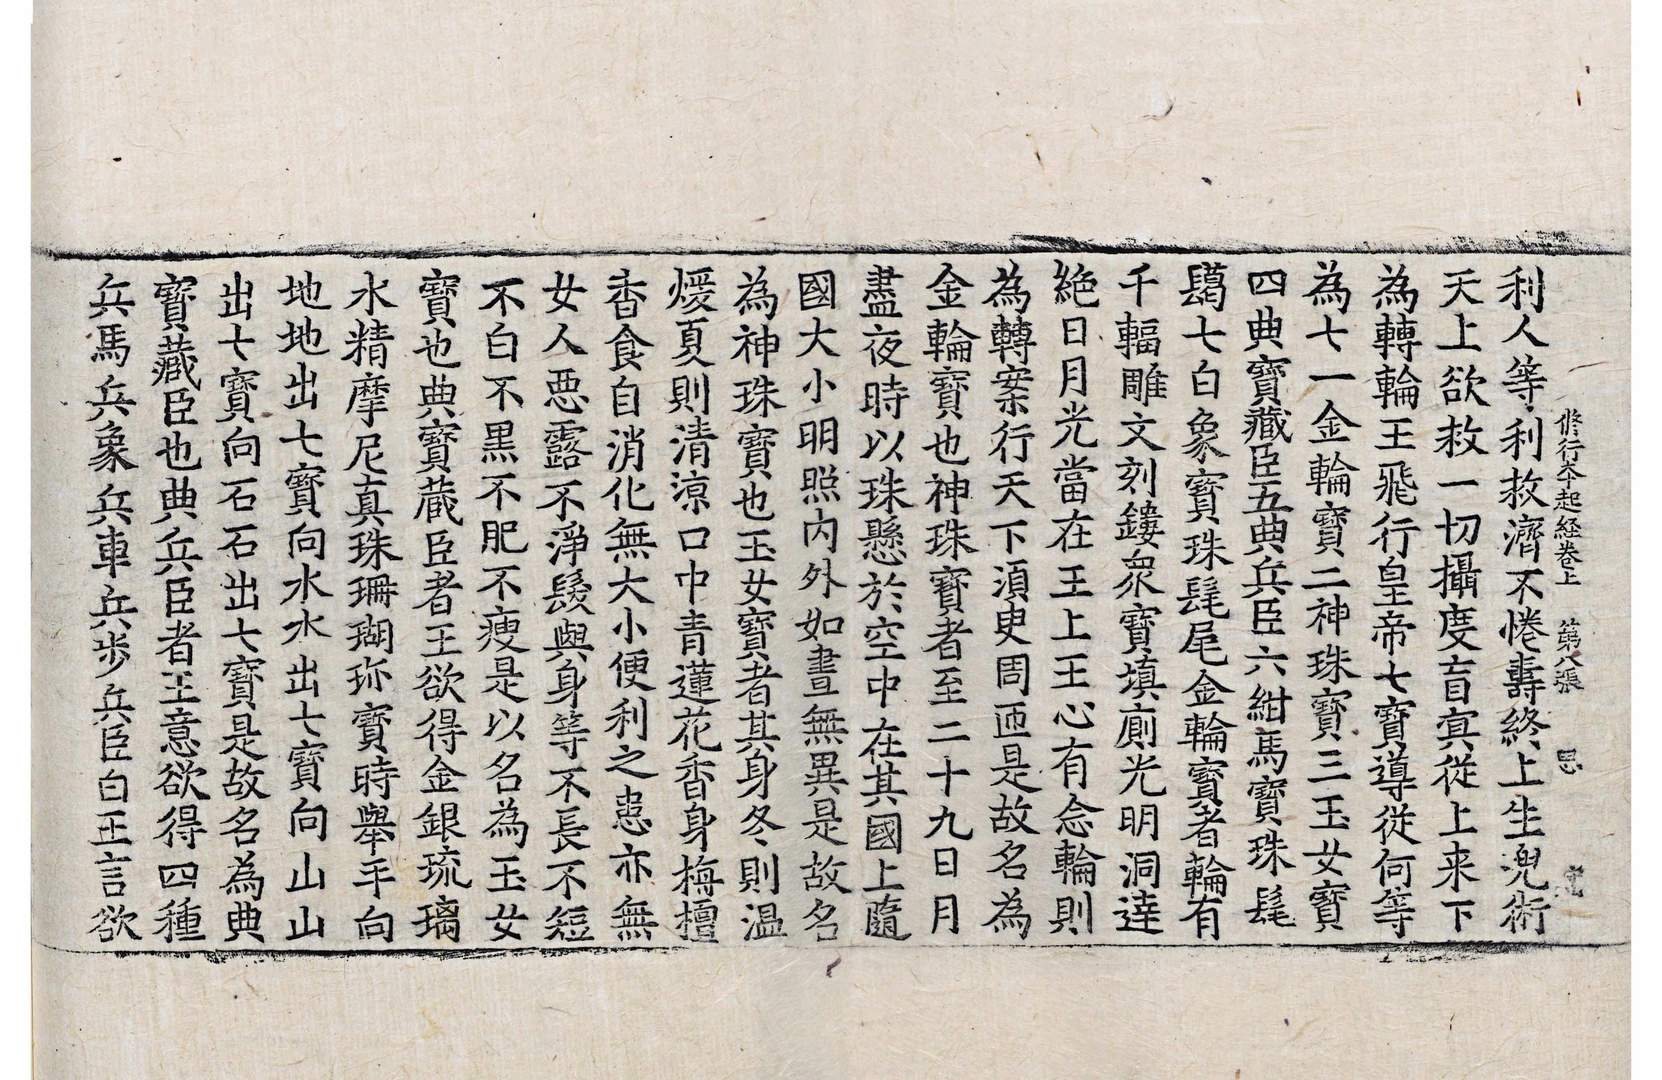 修行本起経卷上　第八張　思
利人等利救濟不惓壽終上生兜術
天上欲救一切攝度盲冥從上来下
為轉輪王飛行皇帝七寶導從何等
為七一金輪寶二神珠寶三玉女寶
四典寶藏臣五典兵臣六紺馬寶珠髦
䭷七白象寶珠髦尾金輪寶者輪有
千輻雕文刻鏤衆寶填廁光明洞達
絶日月光當在王上王心有念輪則
為轉案行天下須臾周匝是故名為
金輪寶也神珠寶者至二十九日月
盡夜時以珠懸於空中在其國上隨
國大小明照內外如晝無異是故名
為神珠寶也玉女寶者其身冬則温
煖夏則清涼口中青蓮花香身栴檀
香食自消化無大小便利之患亦無
女人惡露不淨髮與身等不長不短
不白不黒不肥不瘦是以名為玉女
寶也典寶藏臣者王欲得金銀琉璃
水精摩尼真珠珊瑚珎寶時舉手向
地地出七寶向水水出七寶向山山
出七寶向石石出七寶是故名為典
寶藏臣也典兵臣者王意欲得四種
兵馬兵象兵車兵歩兵臣白王言欲